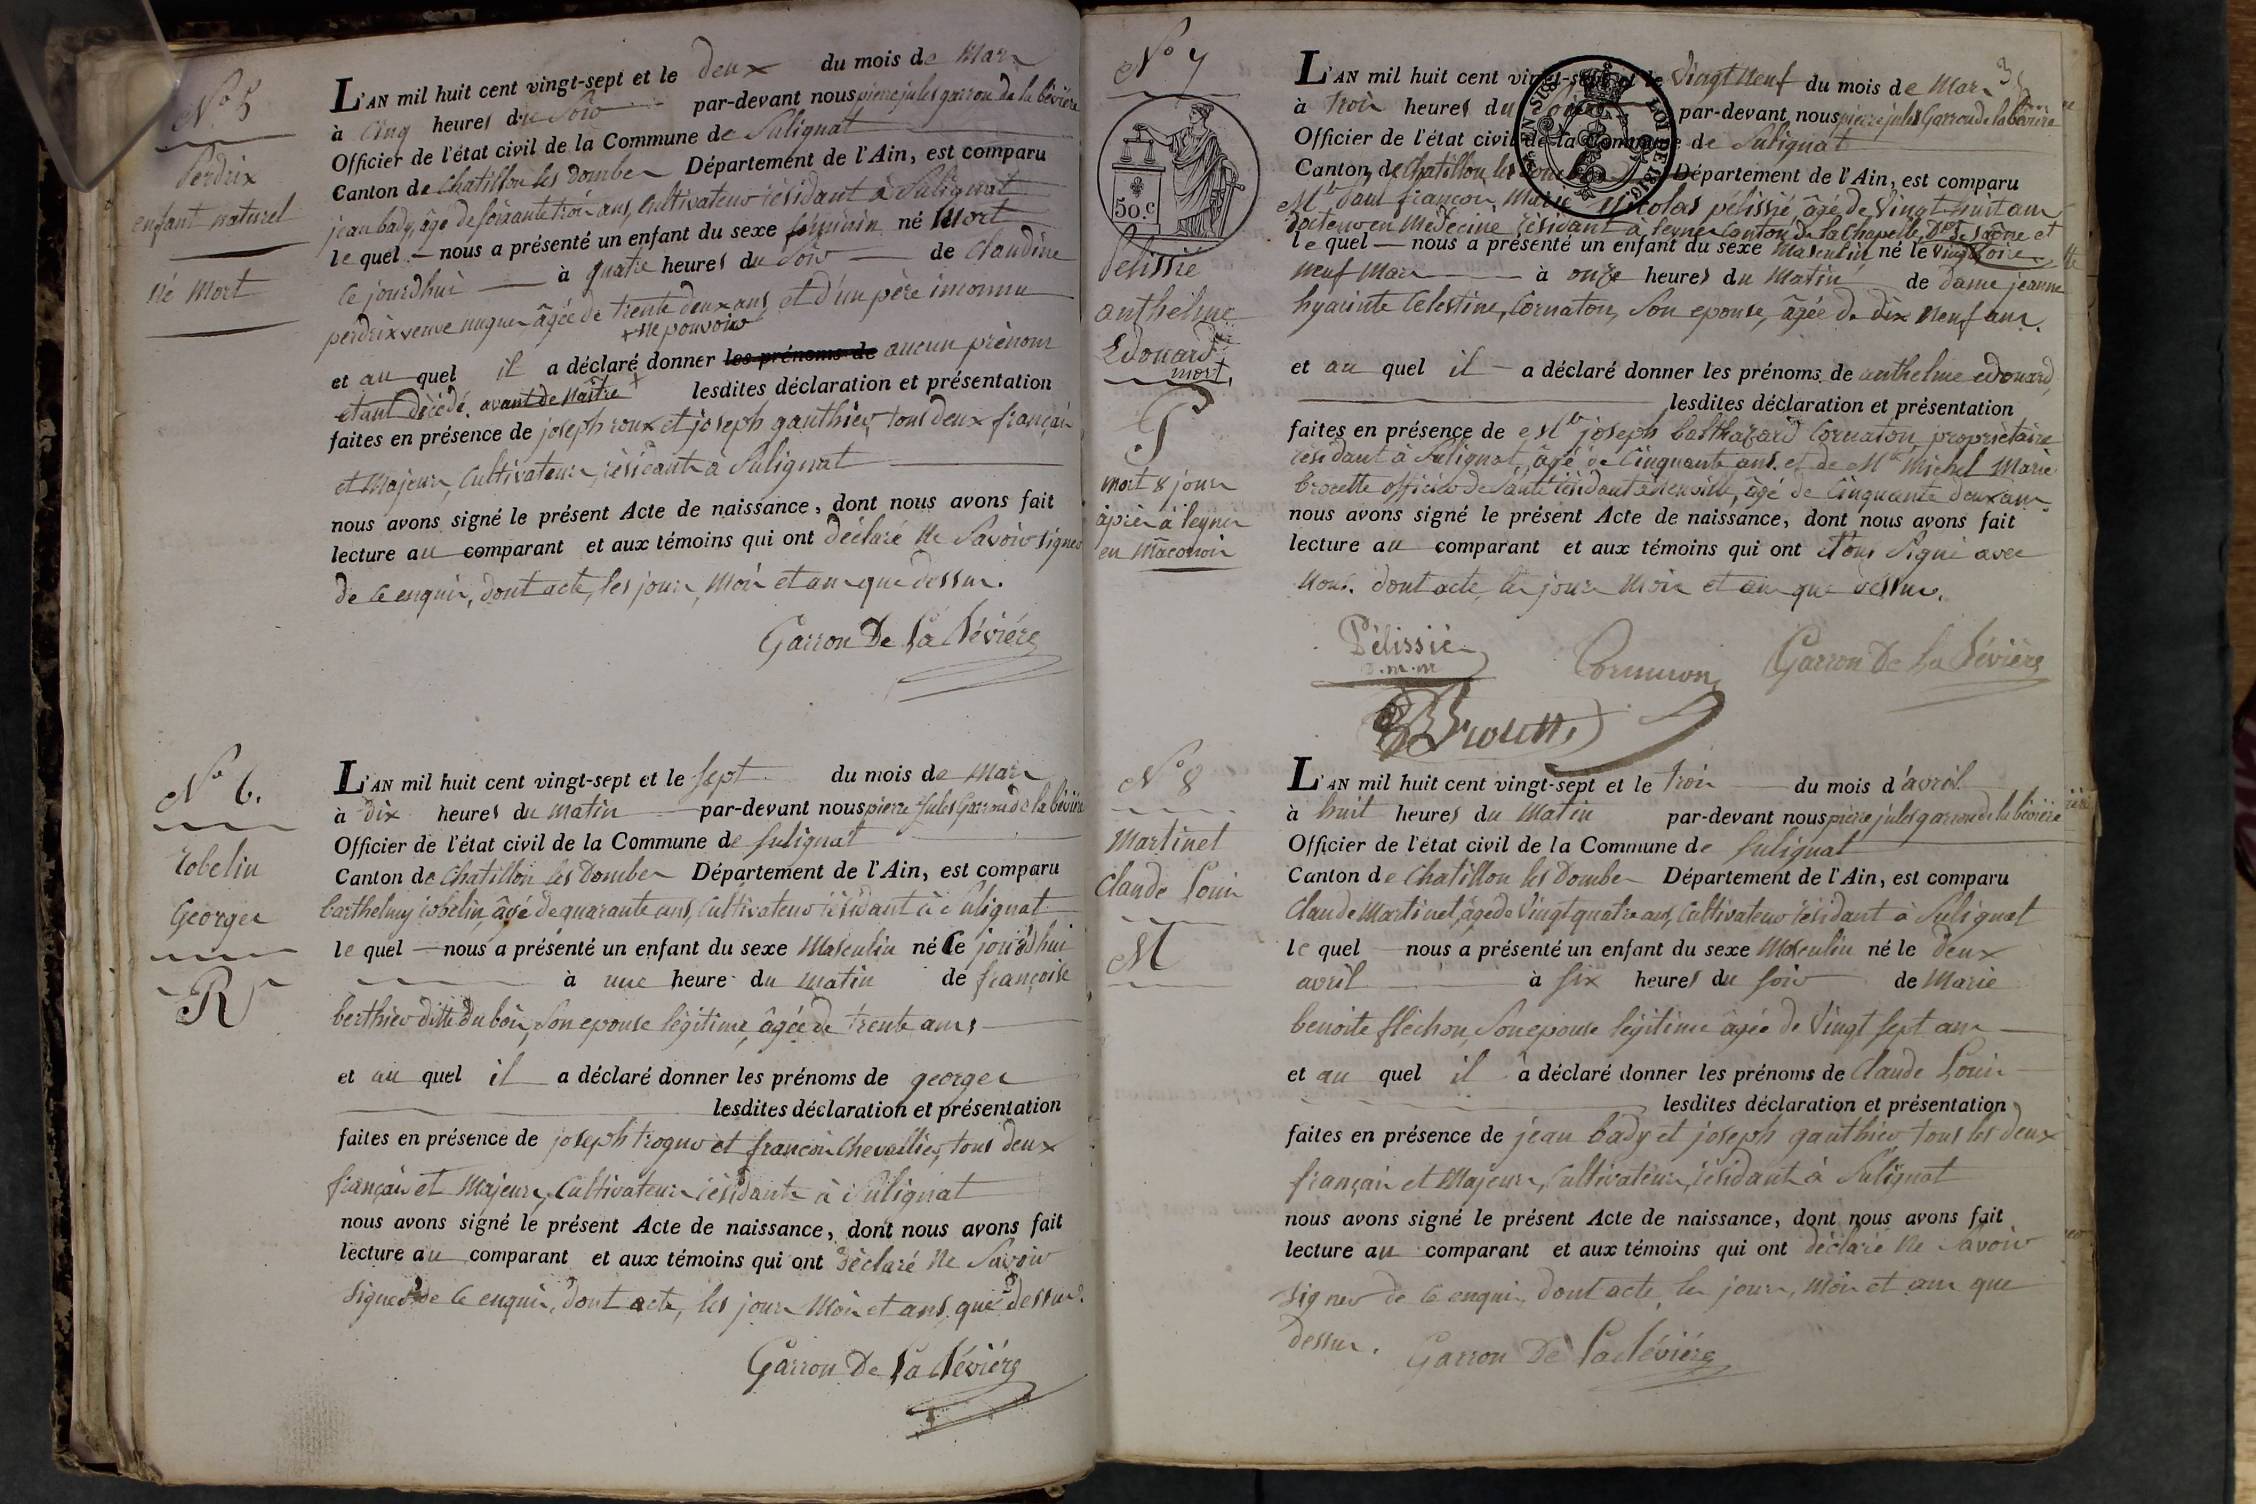 N° 5
Perdrix
enfant naturel
né Mort
L'AN mil huit cent vingt-sept et le deux du mois de Mars
à Cinq heures du Soir par-devant nous pierre jules garron de la bévière
Officier de l'état civil de la Commune de Sulignat
Canton de Chatillon les Dombes Département de l'Ain, est comparu
jean bady, âgé de soixante trois ans, Cultivateur résidant à Sulignat
le quel nous a présenté un enfant du sexe féminin né Mort
ce jourdhui à quatre heures du Soir de Claudine
perdrix veuve âgée de trente deux ans et d'un père inconnu
+ ne pouvoir
et au quel il a déclaré donner les prénoms de aucun prénom
étant décédé avant de Naître + lesdites déclaration et présentation
faites en présence de joseph roux et joseph gauthier, tous deux français
et Majeurs, Cultivateurs, résidants à Sulignat
nous avons signé le présent Acte de naissance, dont nous avons fait
lecture au comparant et aux témoins qui ont déclaré Ne Savoir signer
de ce enquis, dont acte, les jours, Mois et an que dessus.
Garron De La Bévière
N° 6.
robelin
Georges
R
L'AN mil huit cent vingt-sept et le sept du mois de Mars
à dix heures du matin par-devant nous pierre jules Garron de la bévière
Officier de l'état civil de la Commune de Sulignat
Canton de Chatillon les Dombes Département de l'Ain, est comparu
barthelmy robelin, âgé de quarante ans, Cultivateur résidant à Sulignat
le quel nous a présenté un enfant du sexe Masculin né Ce jourdhui
à une heure du matin de françoise
berthier ditte du bois, son epouse légitime, âgée de trente ans
et au quel il a déclaré donner les prénoms de georges
lesdites déclaration et présentation
faites en présence de joseph et françois Chevallier, tous deux
français et Majeurs, Cultivateurs résidants à Sulignat
nous avons signé le présent Acte de naissance, dont nous avons fait
lecture au comparant et aux témoins qui ont déclaré Ne Savoir
signer de ce enquis, dont acte, les jours Mois et ans que dessus.
Garron De La Bévière
N° 7
50.C
Pelissié
anthelme
Edouard
mort
P
mort 8 jours
après à leynes
en Maconois
L'AN mil huit cent vingt-sept et le Vingt Neuf du mois de Mars
à trois heures du Soir par-devant nous pierre jules Garron de la bévière
Officier de l'état civil de la Commune de Sulignat
Canton de Chatillon les Dombes Département de l'Ain, est comparu
Mr paul françois Marie Nicolas pélissié, âgé de Vingt huit ans
docteur en Médecine résidant à leynes Canton de la Chapelle, Dpt de Saône et
le quel nous a présenté un enfant du sexe Masculin né le Vingt Loire
Neuf Mars à onze heures du Matin de dame jeanne
hyacinte Celestine, Cornaton, Son epouse, âgée de dix Neuf ans.
et au quel il a déclaré donner les prénoms de anthelme edouard,
lesdites déclaration et présentation
faites en présence de Mr joseph balthazard Cornaton, propriétaire
résidant à Sulignat, âgé de Cinquante ans. et de Mr Michel Marie
brocette officier de Santé résidant à âgé de Cinquante deux ans
nous avons signé le présent Acte de naissance, dont nous avons fait
lecture au comparant et aux témoins qui ont Tous Signé avec
Nous. dont acte, les jours Mois et an que dessus.
Pélissié
d.m.m
Cornaton
Garron De La Bévière
N° 8
Martinet
Claude Louis
M
L'AN mil huit cent vingt-sept et le trois du mois d'avril
à huit heures du Matin par-devant nous pierre jules garron de la bévière
Officier de l'état civil de la Commune de Sulignat
Canton de Chatillon les Dombes Département de l'Ain, est comparu
Claude Martinet, âgé de Vingt quatre ans, Cultivateur résidant à Sulignat
le quel nous a présenté un enfant du sexe Masculin né le deux
avril à six heures du soir de Marie
benoite fléchon, Son epouse légitime âgée de Vingt sept ans
et au quel il a déclaré donner les prénoms de Claude Louis
lesdites déclaration et présentation
faites en présence de jean bady et joseph gauthier tous les deux
français et Majeurs, Cultivateurs, résidant à Sulignat
nous avons signé le présent Acte de naissance, dont nous avons fait
lecture au comparant et aux témoins qui ont déclaré Ne Savoir
signer de ce enquis, dont acte, les jours, Mois et an que
dessus.
Garron De La Bévière